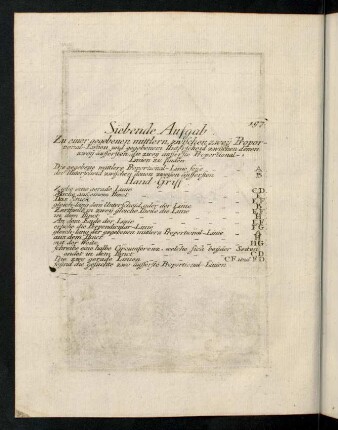 Siebende Aufgab
Zu einer gegebenen mittlern, zwischen zweÿ Propor-
tional-Linien, und gegebenem Unterscheid zwischen denen
zweÿ äussersten, die zweÿ äusserste Proportional-
Linien zu finden
Die gegebene mittlere Proportional-Linie seÿe A
der Unterscheid zwischen denen zweÿen äussersten B
Hand Griff
Ziehe eine gerade Linie C D
aus einem Punct E
Das Stuck E F
gleich lang dem Unterscheid oder der Linie B
in zweÿ gleiche Theile die Linie E F
in dem Punct H
An dem Ende der Linie E F
die Perpendicular-Linie F G
gleich lang der gegebenen mittlern Proportional-Linie A
aus dem Punct H
mit der Weite H G
schreibe eine halbe Circumferenz, welche sich beÿder Seiten
endet in dem Punct C D
Die zwo gerade Linien C F und F D
seÿnd die gesuchte zwo äusserste Proportional-Linien